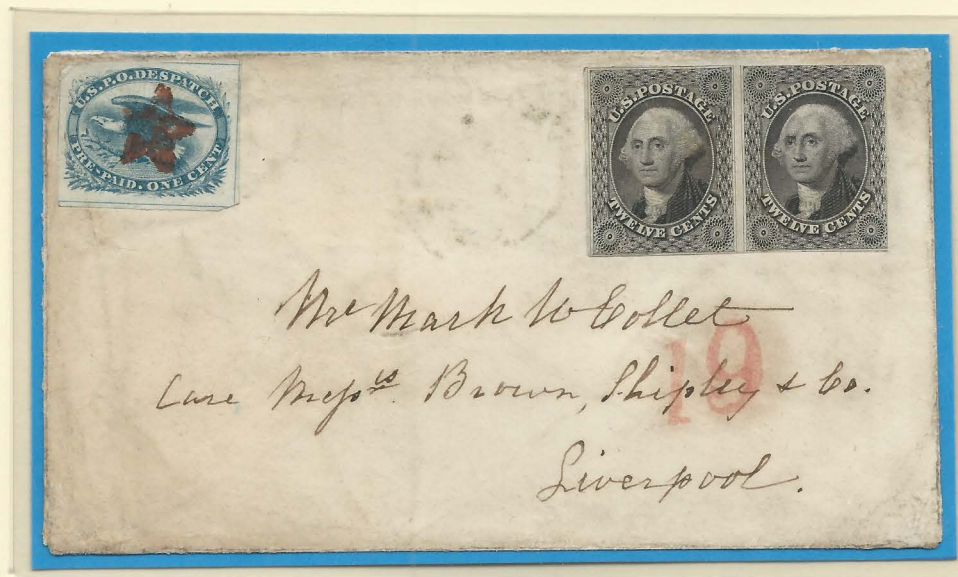 U.S.P.O. DESPATCH
PRE-PAID. ONE CENT
U.S. POSTAGE
TWELVE CENTS
U.S. POSTAGE
TWELVE CENTS
Mr Mark W Collet
19
Care Messrs. Brown, Shipley & Co.
Liverpool.